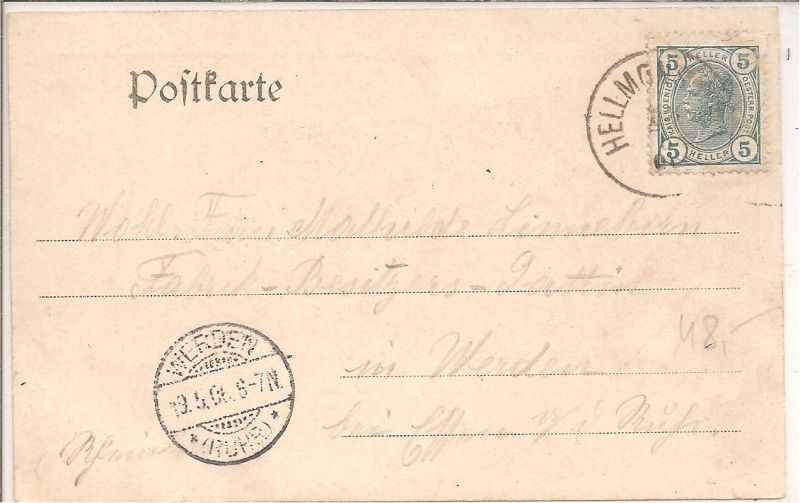 Postkarte
HELLMGA
5 HELLER 5
KAIS. KOENIGL. OESTERR. POST
5 HELLER 5
Wohl. Frau Mathilde
Fabrik-Besitzers-Gattin
48,-
in Werden
bei Essen a/d Ruhr
WERDEN
19.5.06. 6-7N.
* (RUHR) *